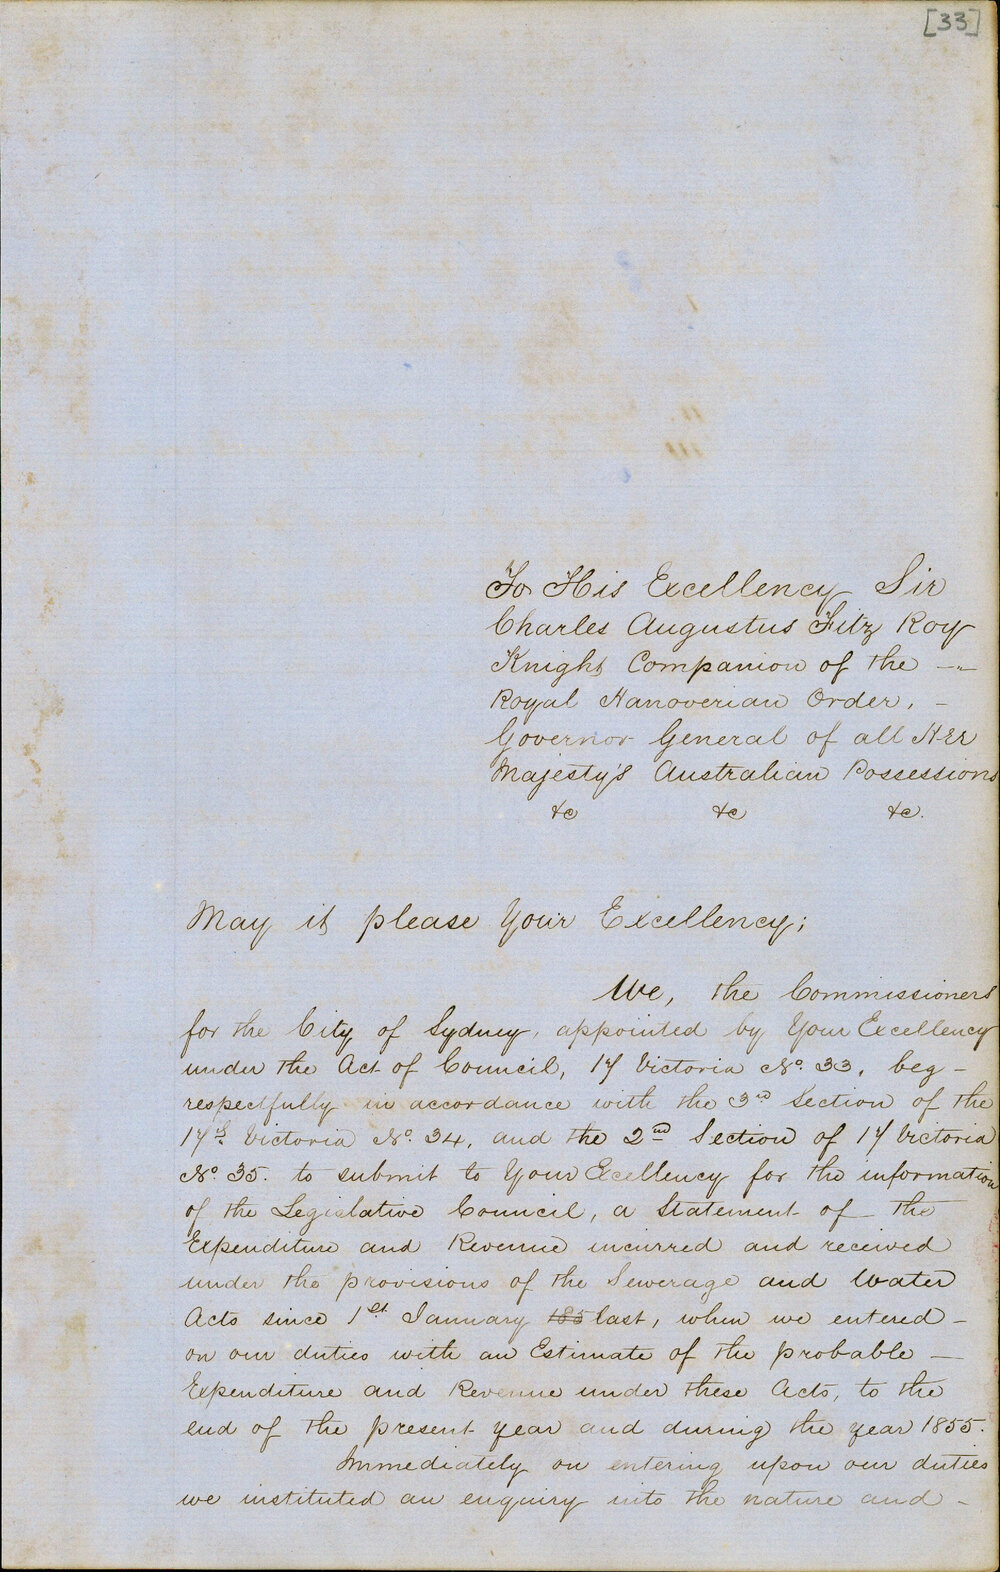 [33]
To His Excellency Sir
Charles Augustus Fitz Roy
Knight Companion of the —
Royal Hanoverian Order, –
Governor General of all Her
Majesty's Australian Possessions
&c &c &c.
May it please Your Excellency;
We, the Commissioners
for the City of Sydney, appointed by Your Excellency
under the Act of Council, 17 Victoria No. 33, beg –
respectfully in accordance with the 3rd Section of the
17th Victoria No. 34, and the 2nd Section of 17 Victoria
No. 35. to submit to Your Excellency for the information
of the Legislative Council, a Statement of – the
Expenditure and Revenue incurred and received
under the provisions of the Sewerage and Water
Acts since 1st January 185 last, when we entered –
on our duties with an Estimate of the probable —
Expenditure and Revenue under these Acts, to the
end of the present year and during the year 1855.
Immediately on entering upon our duties
we instituted an enquiry into the nature and –